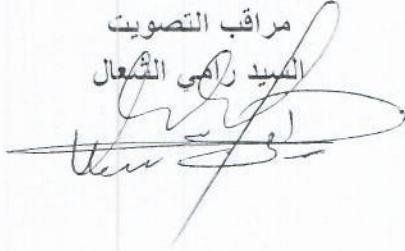 مراقب التصويت
السيد رامي الشعال